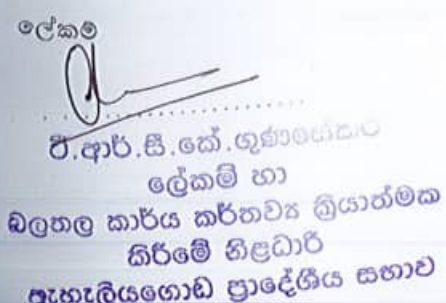 ලේකම්
ටී.ආර්.සී.කේ.ගුණසේකර
ලේකම් හා
බලතල කාර්ය කර්තව්‍ය ක්‍රියාත්මක
කිරීමේ නිළධාරී
ඇහැලියගොඩ ප්‍රාදේශීය සභාව